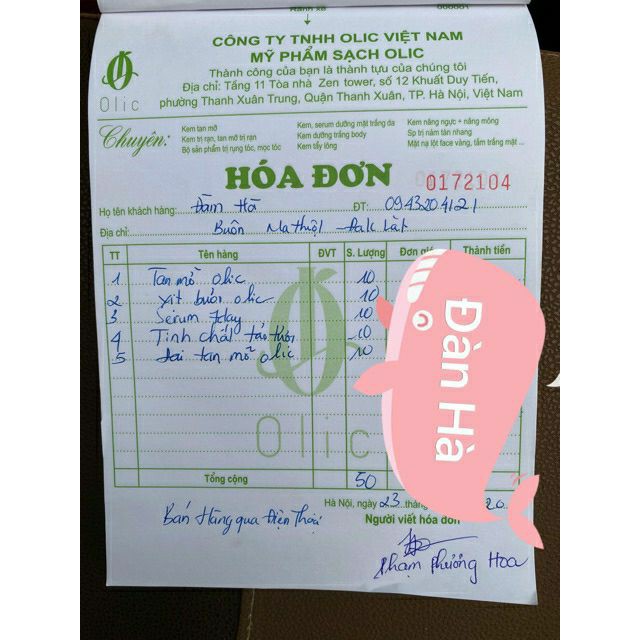 000001
CÔNG TY TNHH OLIC VIỆT NAM
MỸ PHẨM SẠCH OLIC
Thành công của bạn là thành tựu của chúng tôi
Địa chỉ: Tầng 11 Tòa nhà Zen tower, số 12 Khuất Duy Tiến,
phường Thanh Xuân Trung, Quận Thanh Xuân, TP. Hà Nội, Việt Nam
Olic
Chuyên:
Kem tan mỡ
Kem trị rạn, tan mỡ trị rạn
Bộ sản phẩm trị rụng tóc, mọc tóc
Kem, serum dưỡng mặt trắng da
Kem dưỡng trắng body
Kem tẩy lông
Kem nâng ngực + nâng mông
Sp trị nám tàn nhang
Mặt nạ lột face vàng, tắm trắng mặt ...
HÓA ĐƠN 0172104
Họ tên khách hàng: Đàm Hà ĐT: 0943204121
Địa chỉ: Buôn Ma thuột - Đak Lăk
TT Tên hàng ĐVT S. Lượng Đơn giá Thành tiền
1 Tan mỡ olic 10
2 xịt bưởi olic 10
3 Serum 7day 10
4 Tinh chất tảo tươi 10
5 đai tan mỡ olic 10
Olic
Tổng cộng 50
Hà Nội, ngày 23 tháng 20
Bán Hàng qua Điện Thoại
Người viết hóa đơn
Phạm Phương Hoa
Đàn Hà